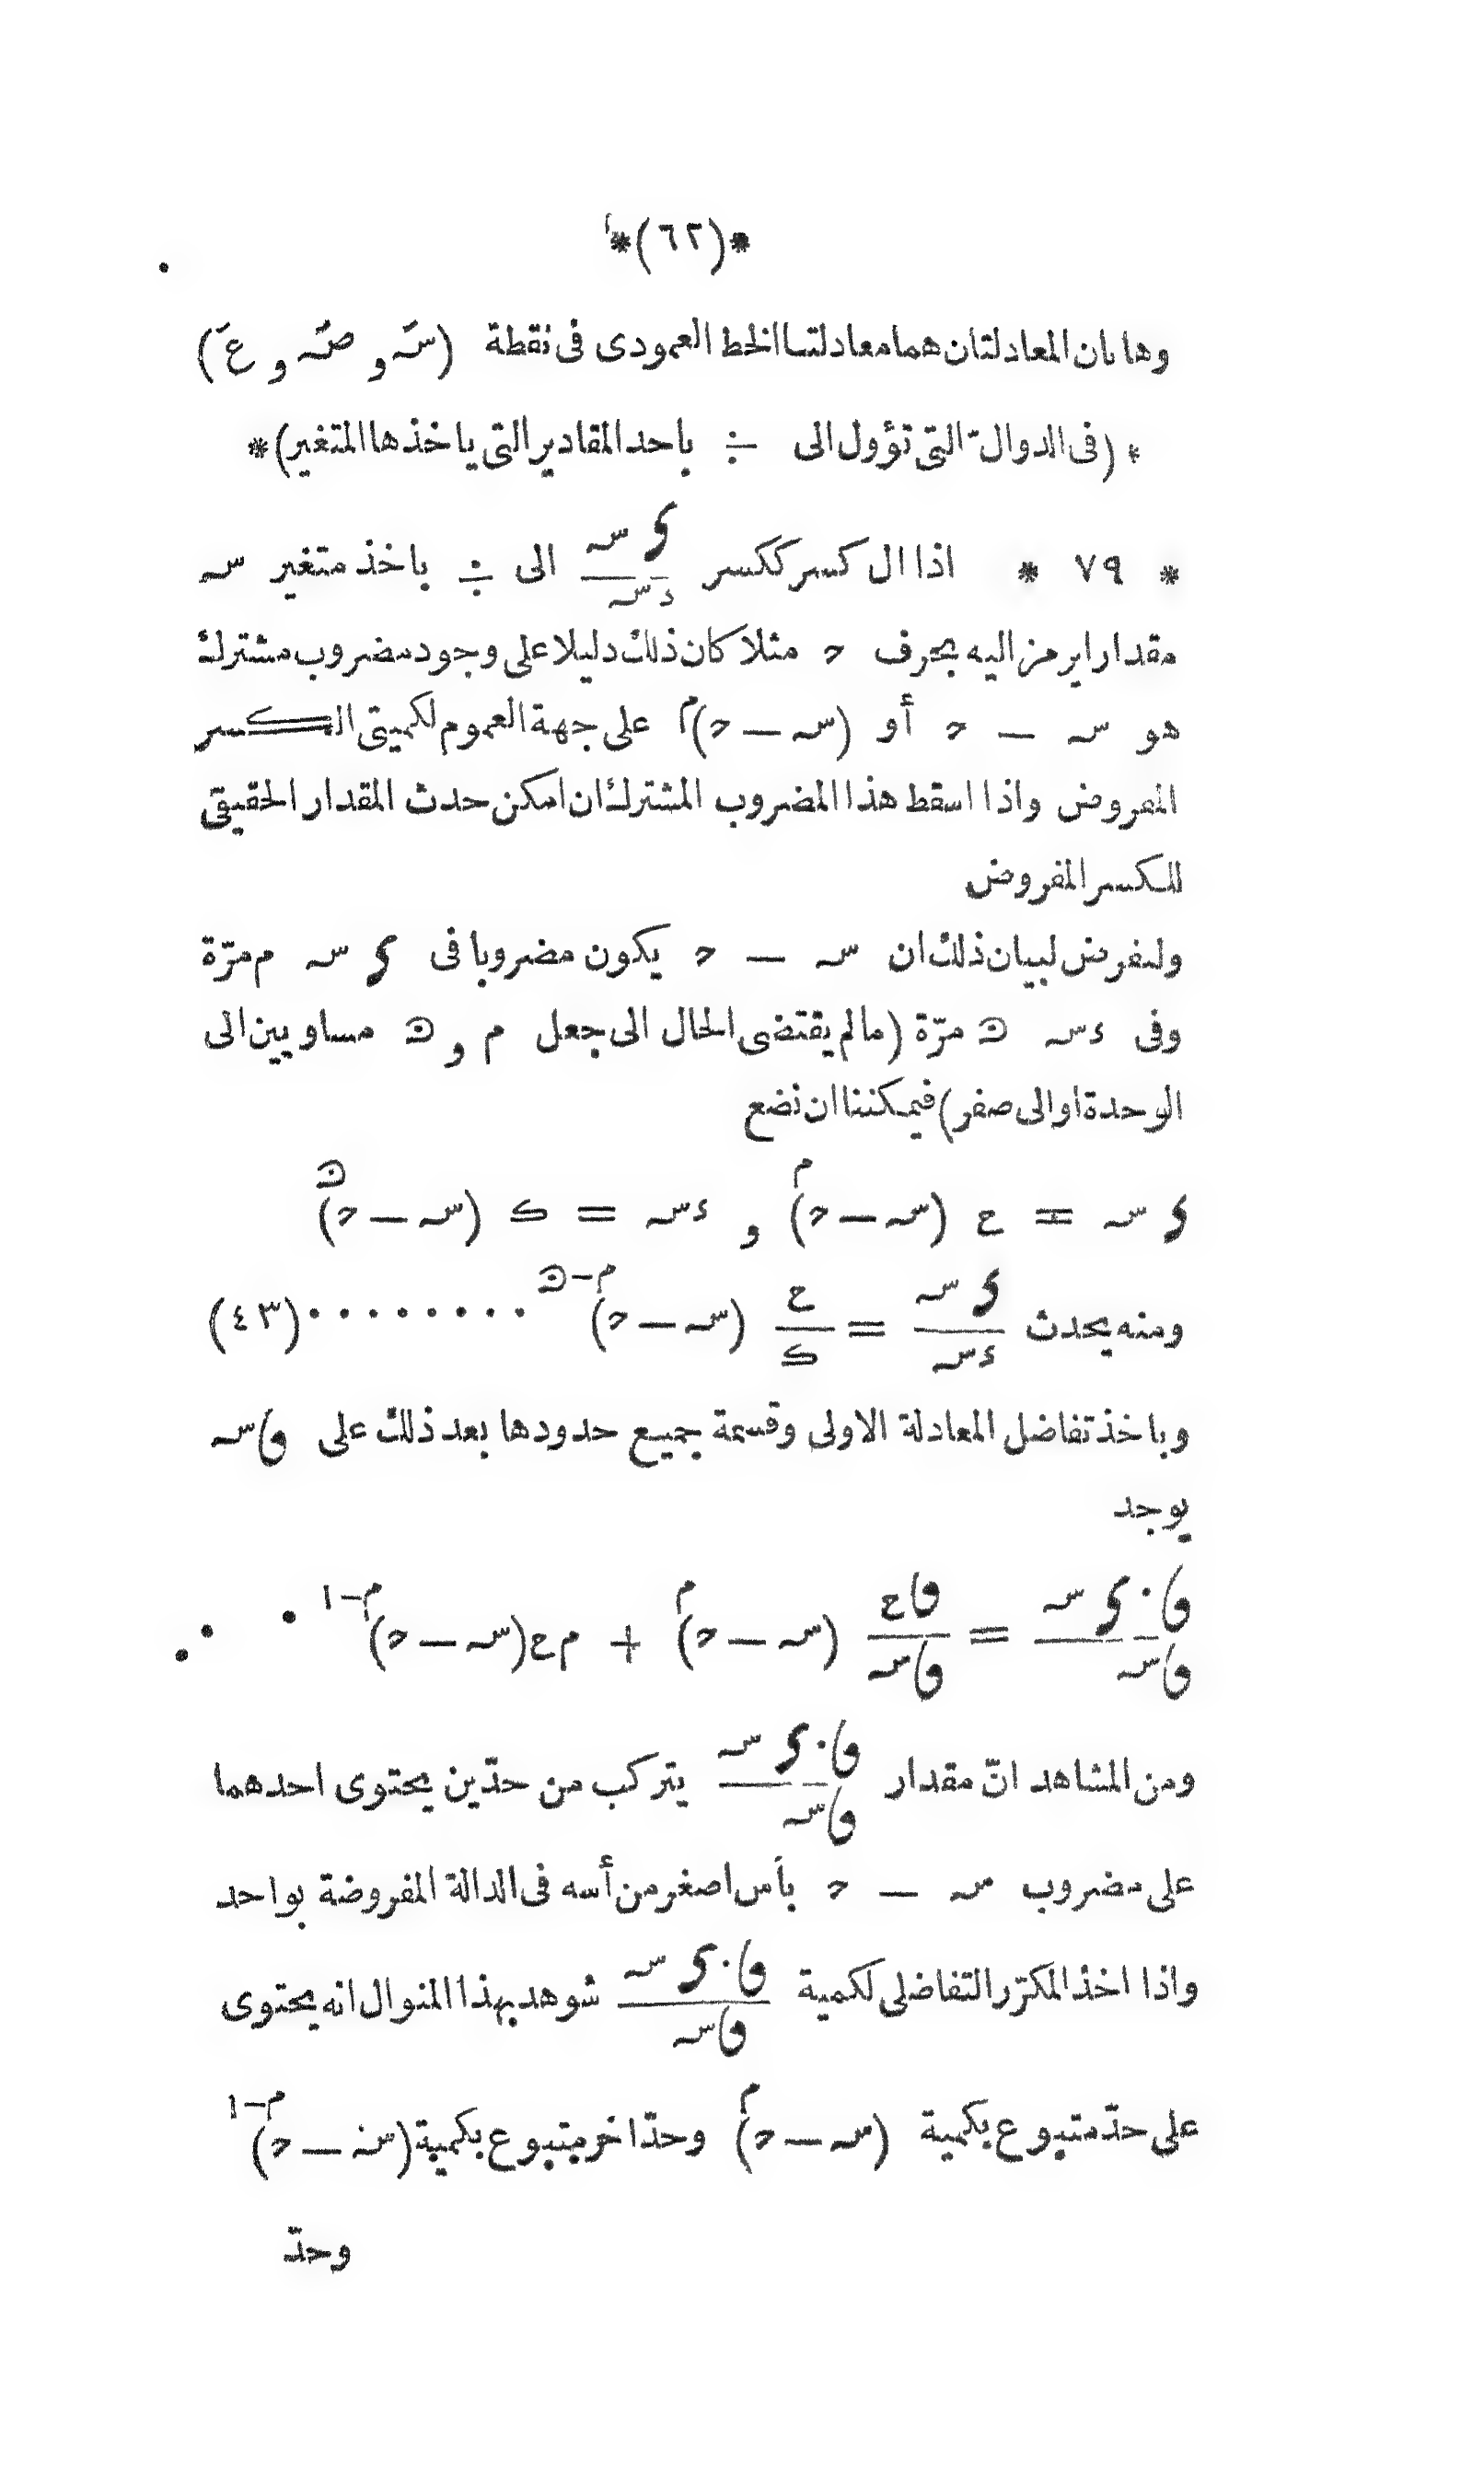 *(٦٢)*
وهاتان المعادلتان هما معادلتا الخط العمودى فى نقطة (سَـ و صَـ و عَ)
*(فى الدوالّ التى تؤول الى ÷ باحد المقادير التى ياخذها المتغير)*
* ٧٩ * اذا ال كسر ككسر <sup>ى سـ</sup>/<sub>ء سـ</sub> الى ÷ باخذ متغير سـ
مقدارا يرمز اليه بحرف حـ مثلا كان ذلك دليلا على وجود مضروب مشترك
هو سـ — حـ أو (سـ — حـ)<sup>م</sup> على جهة العموم لكميتى الكسر
المفروض واذا اسقط هذا المضروب المشترك ان امكن حدث المقدار الحقيقى
للكسر المفروض
ولنفرض لبيان ذلك ان سـ — حـ يكون مضروبا فى ى سـ م مرّة
وفى ء سـ ن مرّة (مالم يقتضى الحال الى جعل م و ن مساويين الى
الوحدة او الى صفر) فيمكننا ان نضع
ى سـ = ع (سـ — حـ)<sup>م</sup> و ء سـ = ك (سـ — حـ)<sup>ن</sup>
ومنه يحدث ى سـ/ء سـ = ع/ك (سـ — حـ)<sup>م–ن</sup> ········(٤٣)
وباخذ تفاضل المعادلة الاولى وقسمة جميع حدودها بعد ذلك على ﻭﺎ سـ
يوجد
ﻭﺎ·ى سـ/ﻭﺎ سـ = ﻭﺎ ع/ﻭﺎ سـ (سـ — حـ)<sup>م</sup> + م ع (سـ — حـ)<sup>م–١</sup>
ومن المشاهد انّ مقدار ﻭﺎ·ى سـ/ﻭﺎ سـ يتركب من حدّين يحتوى احدهما
على مضروب سـ — حـ بأس اصغر من أسه فى الدالة المفروضة بواحد
واذا اخذ المكرّر التفاضلى لكمية ﻭﺎ·ى سـ/ﻭﺎ سـ شوهد بهذا المنوال انه يحتوى
على حدّ متبوع بكمية (سـ — حـ)<sup>م</sup> وحدّ اخر متبوع بكمية (سـ — حـ)<sup>م–١</sup>
وحدّ